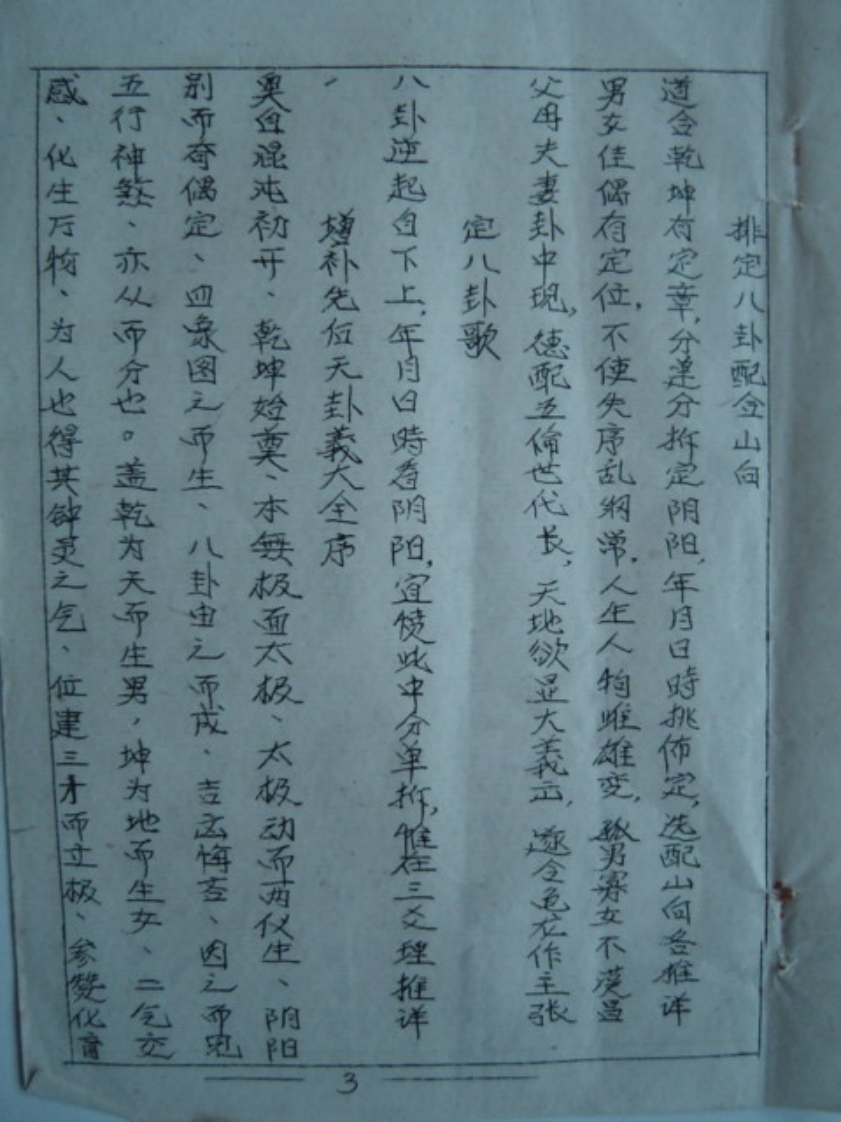 排定八卦配合山向
道合乾坤有定章，分達分拆定阴阳，年月日時挑佈定，选配山向各推详
男女佳偶有定位，不使失序乱纲常，人生人物雌雄变，孤男寡女不茂昌
父母夫妻卦中现，德配五倫世代长，天地欲显大義
定八卦歌
八卦逆起自下上，年月日時看阴阳，宜憑此中分单拆，惟在三爻理推详
增补先位天卦義大全序
奥自混沌初开、乾坤始奠、本無极面太极、太极动而两仪生、阴阳
别而奇偶定、四象图之而生、八卦由之而成、吉凶悔吝、因之而见
五行神煞、亦从而分也。盖乾为天而生男，坤为地而生女、二气交
感、化生万物、为人也得其钟灵之气、位建三才而立极、参赞化育
3